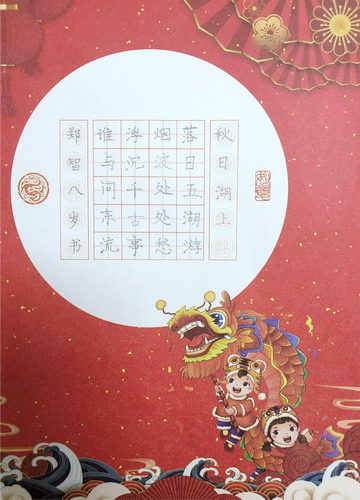 秋日湖上
落日五湖游
烟波处处愁
浮沉千古事
谁与问东流
郑智八岁书